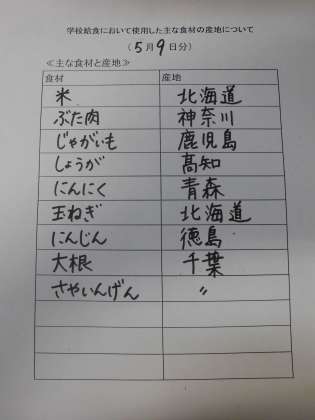 学校給食において使用した主な食材の産地について
(5月9日分)
≪主な食材と産地≫
食材 産地
米 北海道
ぶた肉 神奈川
じゃがいも 鹿児島
しょうが 高知
にんにく 青森
玉ねぎ 北海道
にんじん 徳島
大根 千葉
さやいんげん 〃